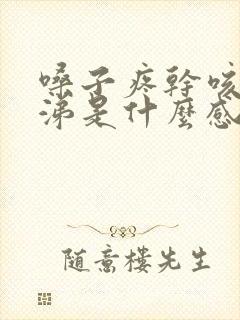 嗓子疼幹咳
涕是什麼感
随意樓先生